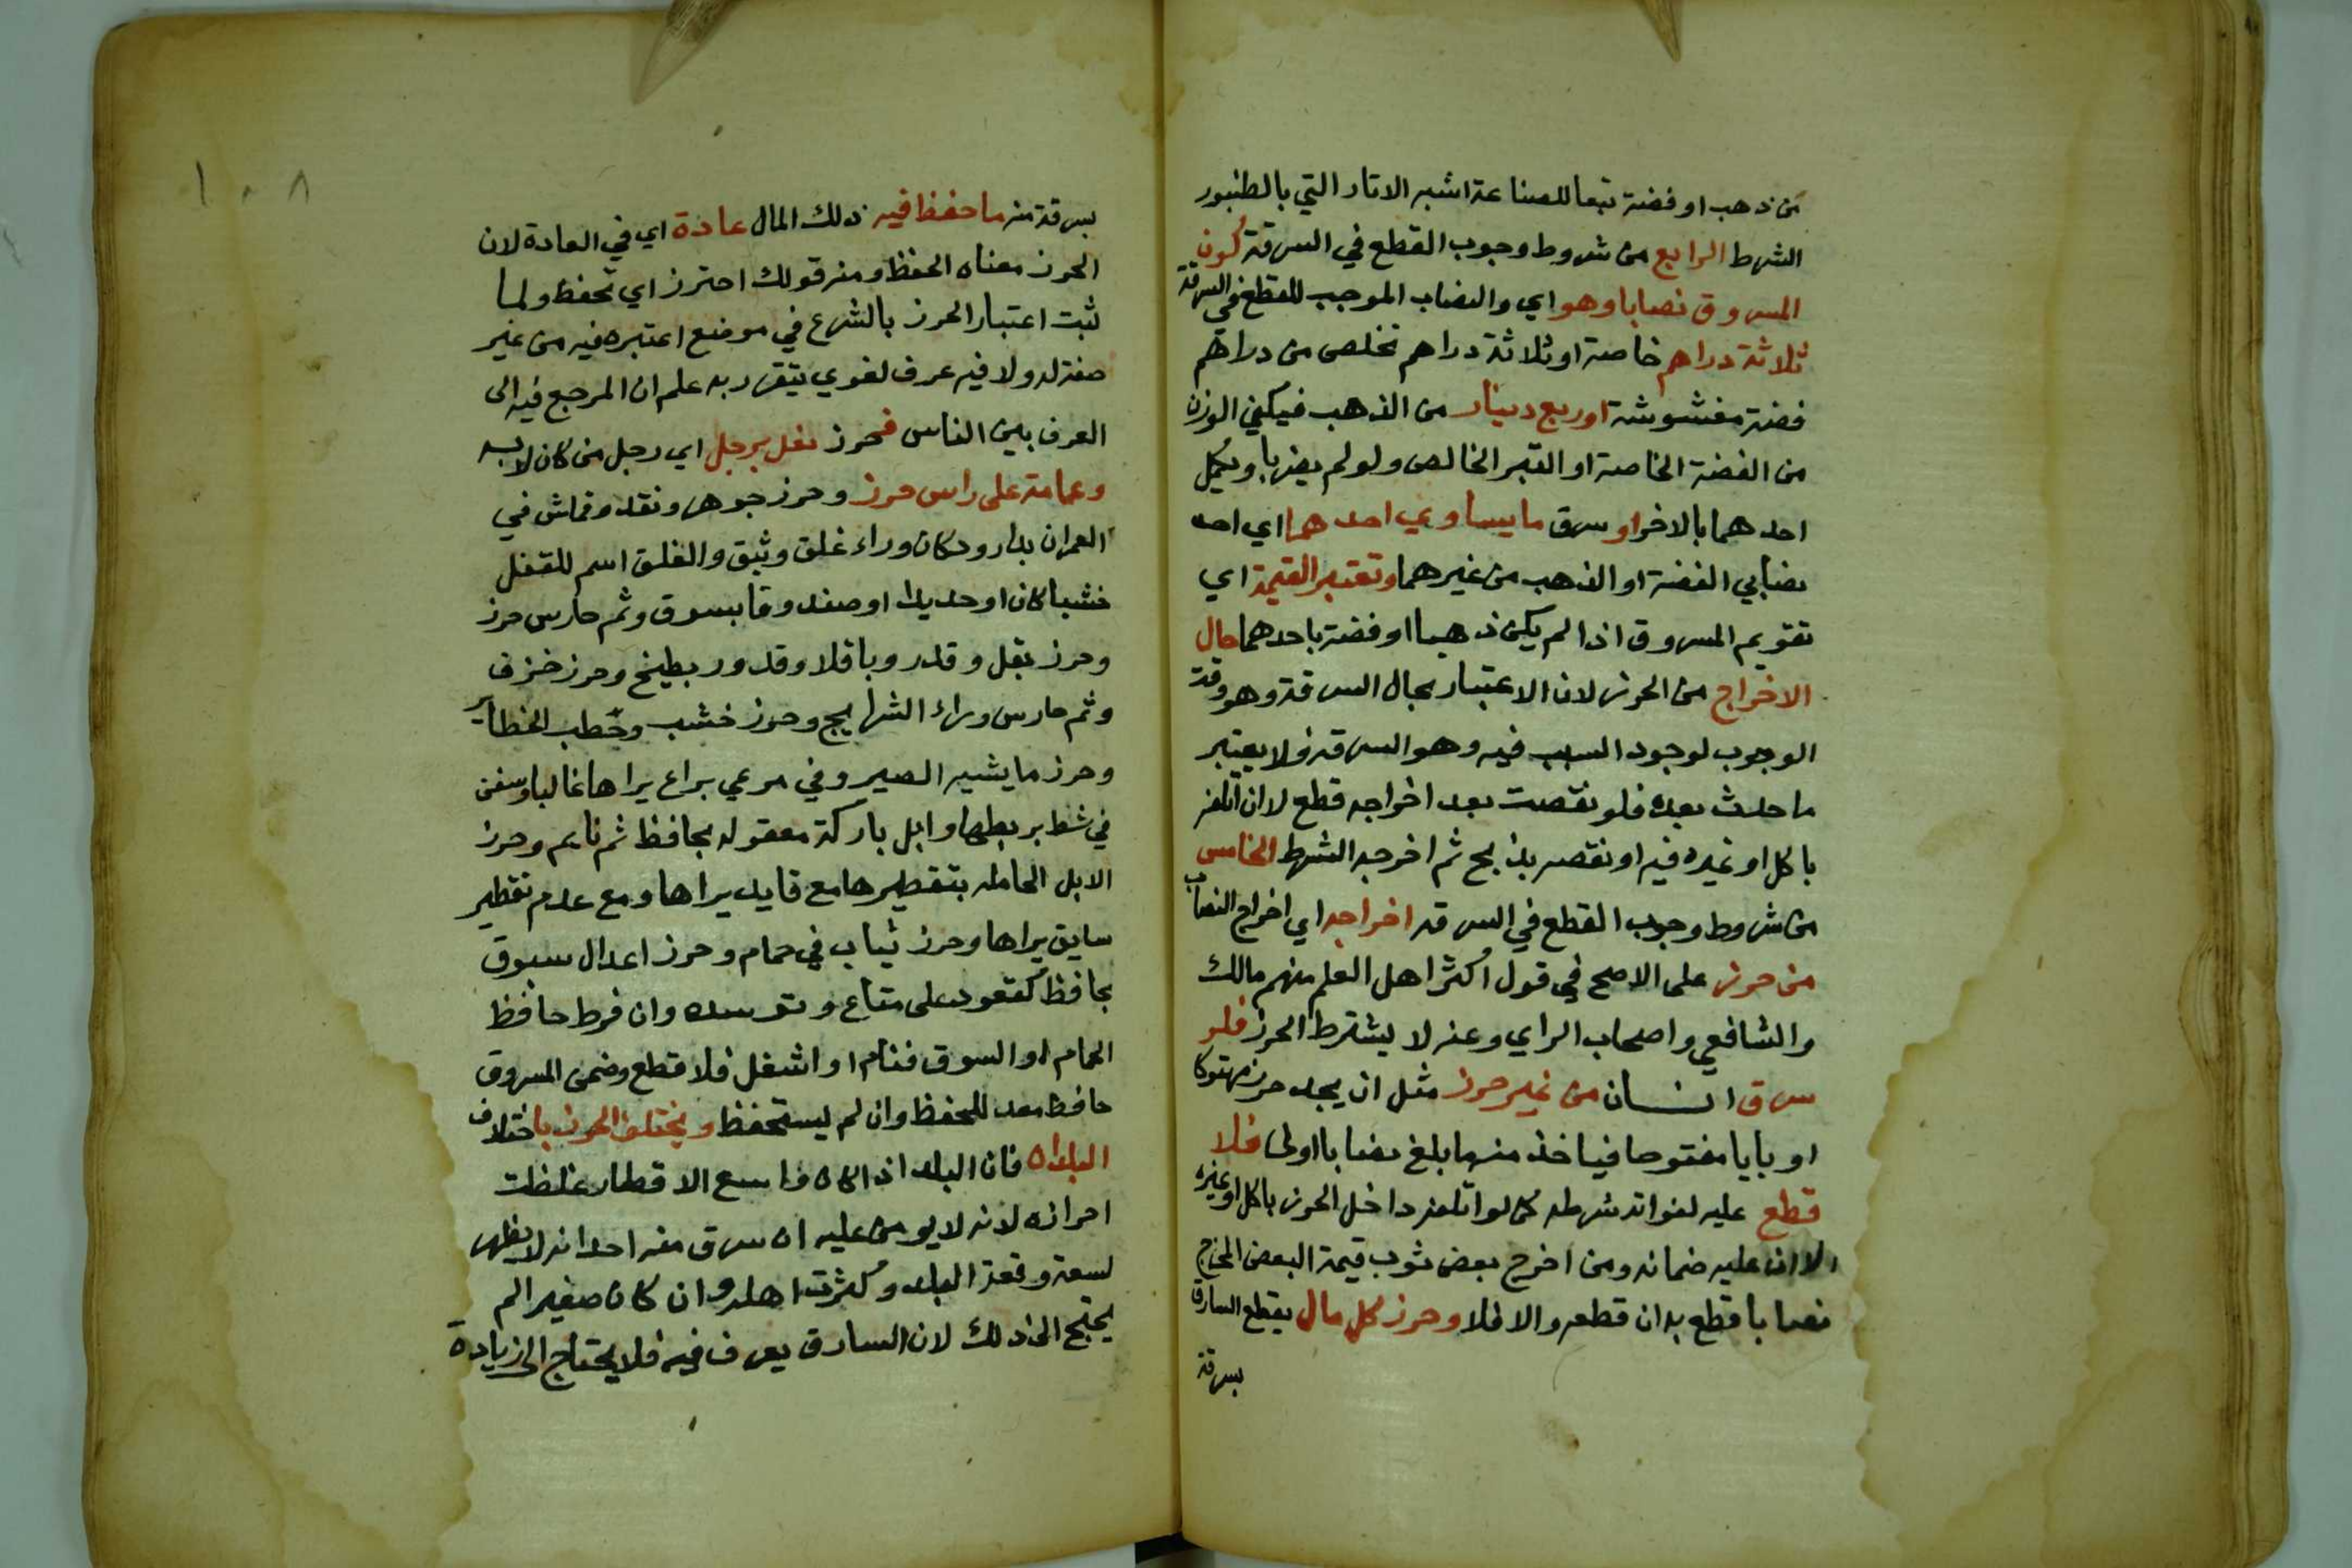 من ذهب او فضة تبعا للصناعة اشبه الاتار التي بالطنبور
الشرط الرابع من شروط وجوب القطع في السرقة كون
المسروق نصابا وهو اي والنصاب الموجب للقطع في السرقة
ثلاثة دراهم خاصة او ثلاثة دراهم تخلص من دراهم
فضة مغشوشة او ربع دينار من الذهب فيكفي الوزن
من الفضة الخاصة او التبر الخالص ولو لم يضربا ويكمل
احدهما بالاخر او سرق ما يساوي احدهما اي احد
نصابي الفضة او الذهب من غيرهما وتعتبر القيمة اي
تقويم المسروق اذا لم يكن ذهبا او فضة باحدهما حال
الاخراج من الحرز لان الاعتبار بحال السرقة وهو وقت
الوجوب لوجود السبب فيه وهو السرقة ولا يعتبر
ما حدث بعده فلو نقصت بعد اخراجه قطع لا ان اتلفه
باكل او غيره فيه او نقصه بذبح ثم اخرجه الشرط الخامس
من شروط وجوب القطع في السرقه اخراجه اي اخراج النصاب
من حرز على الاصح في قول اكثر اهل العلم منهم مالك
والشافعي واصحاب الراي وعنه لا يشترط الحرز فلو
سرق انسان من غير حرز مثل ان يجد حرز مهتوكا
او بابا مفتوحا فياخذ منه ما بلغ نصابا اولى فلا
قطع عليه لفواته شرطه كما لو اتلفه داخل الحرز باكل او غيره
الا ان عليه ضمانه ومن اخرج بعض ثوب قيمة البعض المخرج
نصابا قطع به ان قطعه والا فلا وحرز كل مال يقطع السارق
بسرقة
١٠٨
بسرقة منه ما حفظ فيه ذلك المال عادة اي في العادة لان
الحرز معناه الحفظ ومنه قولك احترز اي تحفظ ولما
ثبت اعتبار الحرز بالشرع في موضع اعتبره فيه من غير
صفة له ولا فيه عرف لغوي يتقرر به علم ان المرجع فيه الى
العرف بين الناس فحرز نعل برجل اي رجل من كان لابسه
وعمامة على راس حرز وحرز جوهر ونقد وقماش في
العمران بدار ودكان وراء غلق وثيق والغلق اسم للقفل
خشبا كان او حديدا او صندوقا بسوق وثم حارس حرز
وحرز بقل وقدر وباقلا وقدور بطيخ وحرز خزف
وثم حارس وراء الشرايج وحرز خشب وحطب الحظاير
وحرز ماشيه الصير وفي مرعي براع يراها غالبا وسفن
في شط بربطها وابل باركة معقوله بحافظ ثم نايم وحرز
الابل الحامله بتقطيرها مع قايد يراها ومع عدم تقطير
سايق يراها وحرز ثياب في حمام وحرز اعدال بسوق
بحافظ كقعود على متاع وتوسده وان فرط حافظ
الحمام او السوق فنام او اشتغل فلا قطع وضمن المسروق
حافظ معد للحفظ وان لم يستحفظ ويختلف الحرز باختلاف
البلدان فان البلد اذا كان واسع الاقطار غلظت
احرازه لانه لا يومن عليه ان سرق منه احد انه لا يظهر
لسعة رقعة البلد وكثرت اهله وان كان صغيرا لم
يحتج الى ذلك لان السارق يعرف فيه فلا يحتاج الى زيادة